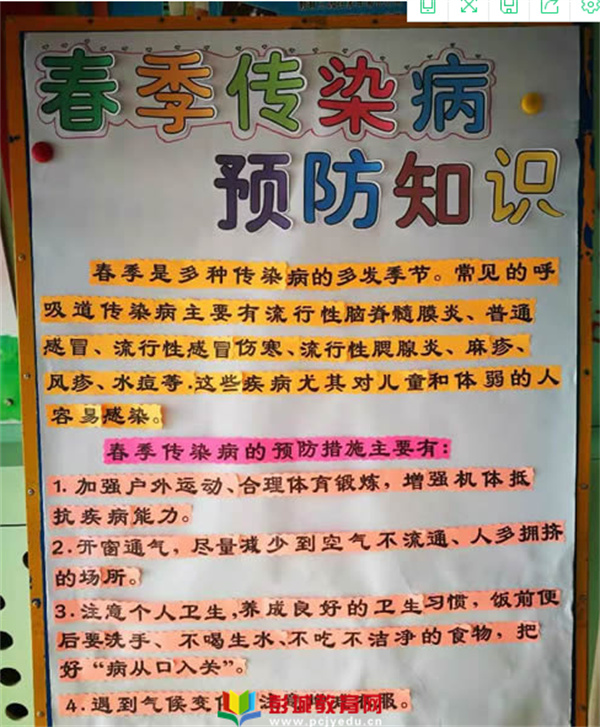 春季传染病
预防知识
春季是多种传染病的多发季节。常见的呼
吸道传染病主要有流行性脑脊髓膜炎、普通
感冒、流行性感冒伤寒、流行性腮腺炎、麻疹、
风疹、水痘等.这些疾病尤其对儿童和体弱的人
容易感染。
春季传染病的预防措施主要有:
1.加强户外运动、合理体育锻炼，增强机体抵
抗疾病能力。
2.开窗通气，尽量减少到空气不流通、人多拥挤
的场所。
3.注意个人卫生,养成良好的卫生习惯，饭前便
后要洗手、不喝生水、不吃不洁净的食物，把
好“病从口入关”。
4.遇到气候变 服。
彭城教育网
www.pcjyedu.cn